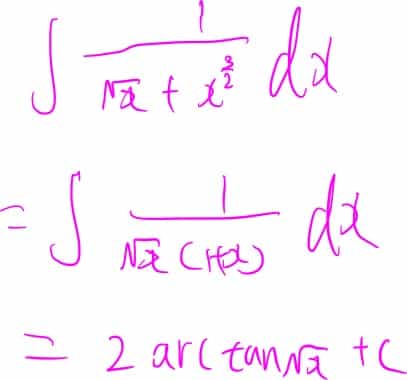 ∫ 1/(√x + x^(3/2)) dx
= ∫ 1/(√x (1+x)) dx
= 2 arctan√x + C